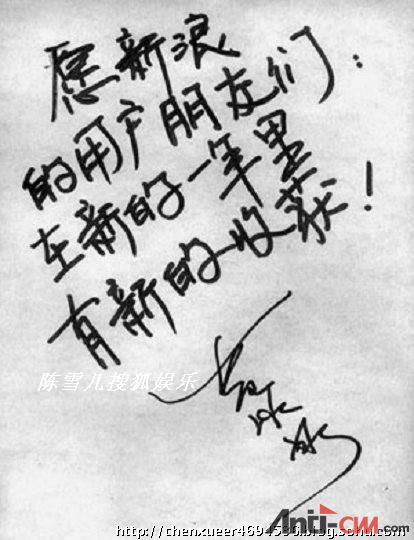 愿新浪
的用户朋友们：
在新的一年里
有新的收获！
陈雪儿搜狐娱乐
Anti-CNN.com